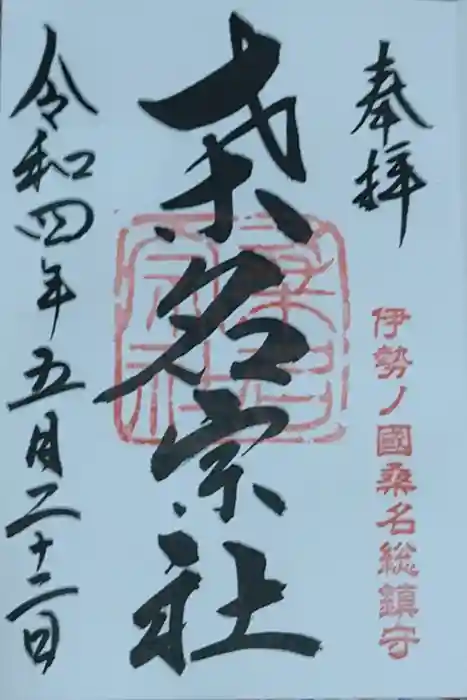 奉拝
伊勢ノ國桑名総鎮守
桑名宗社
桑名宗社
令和四年五月二十二日